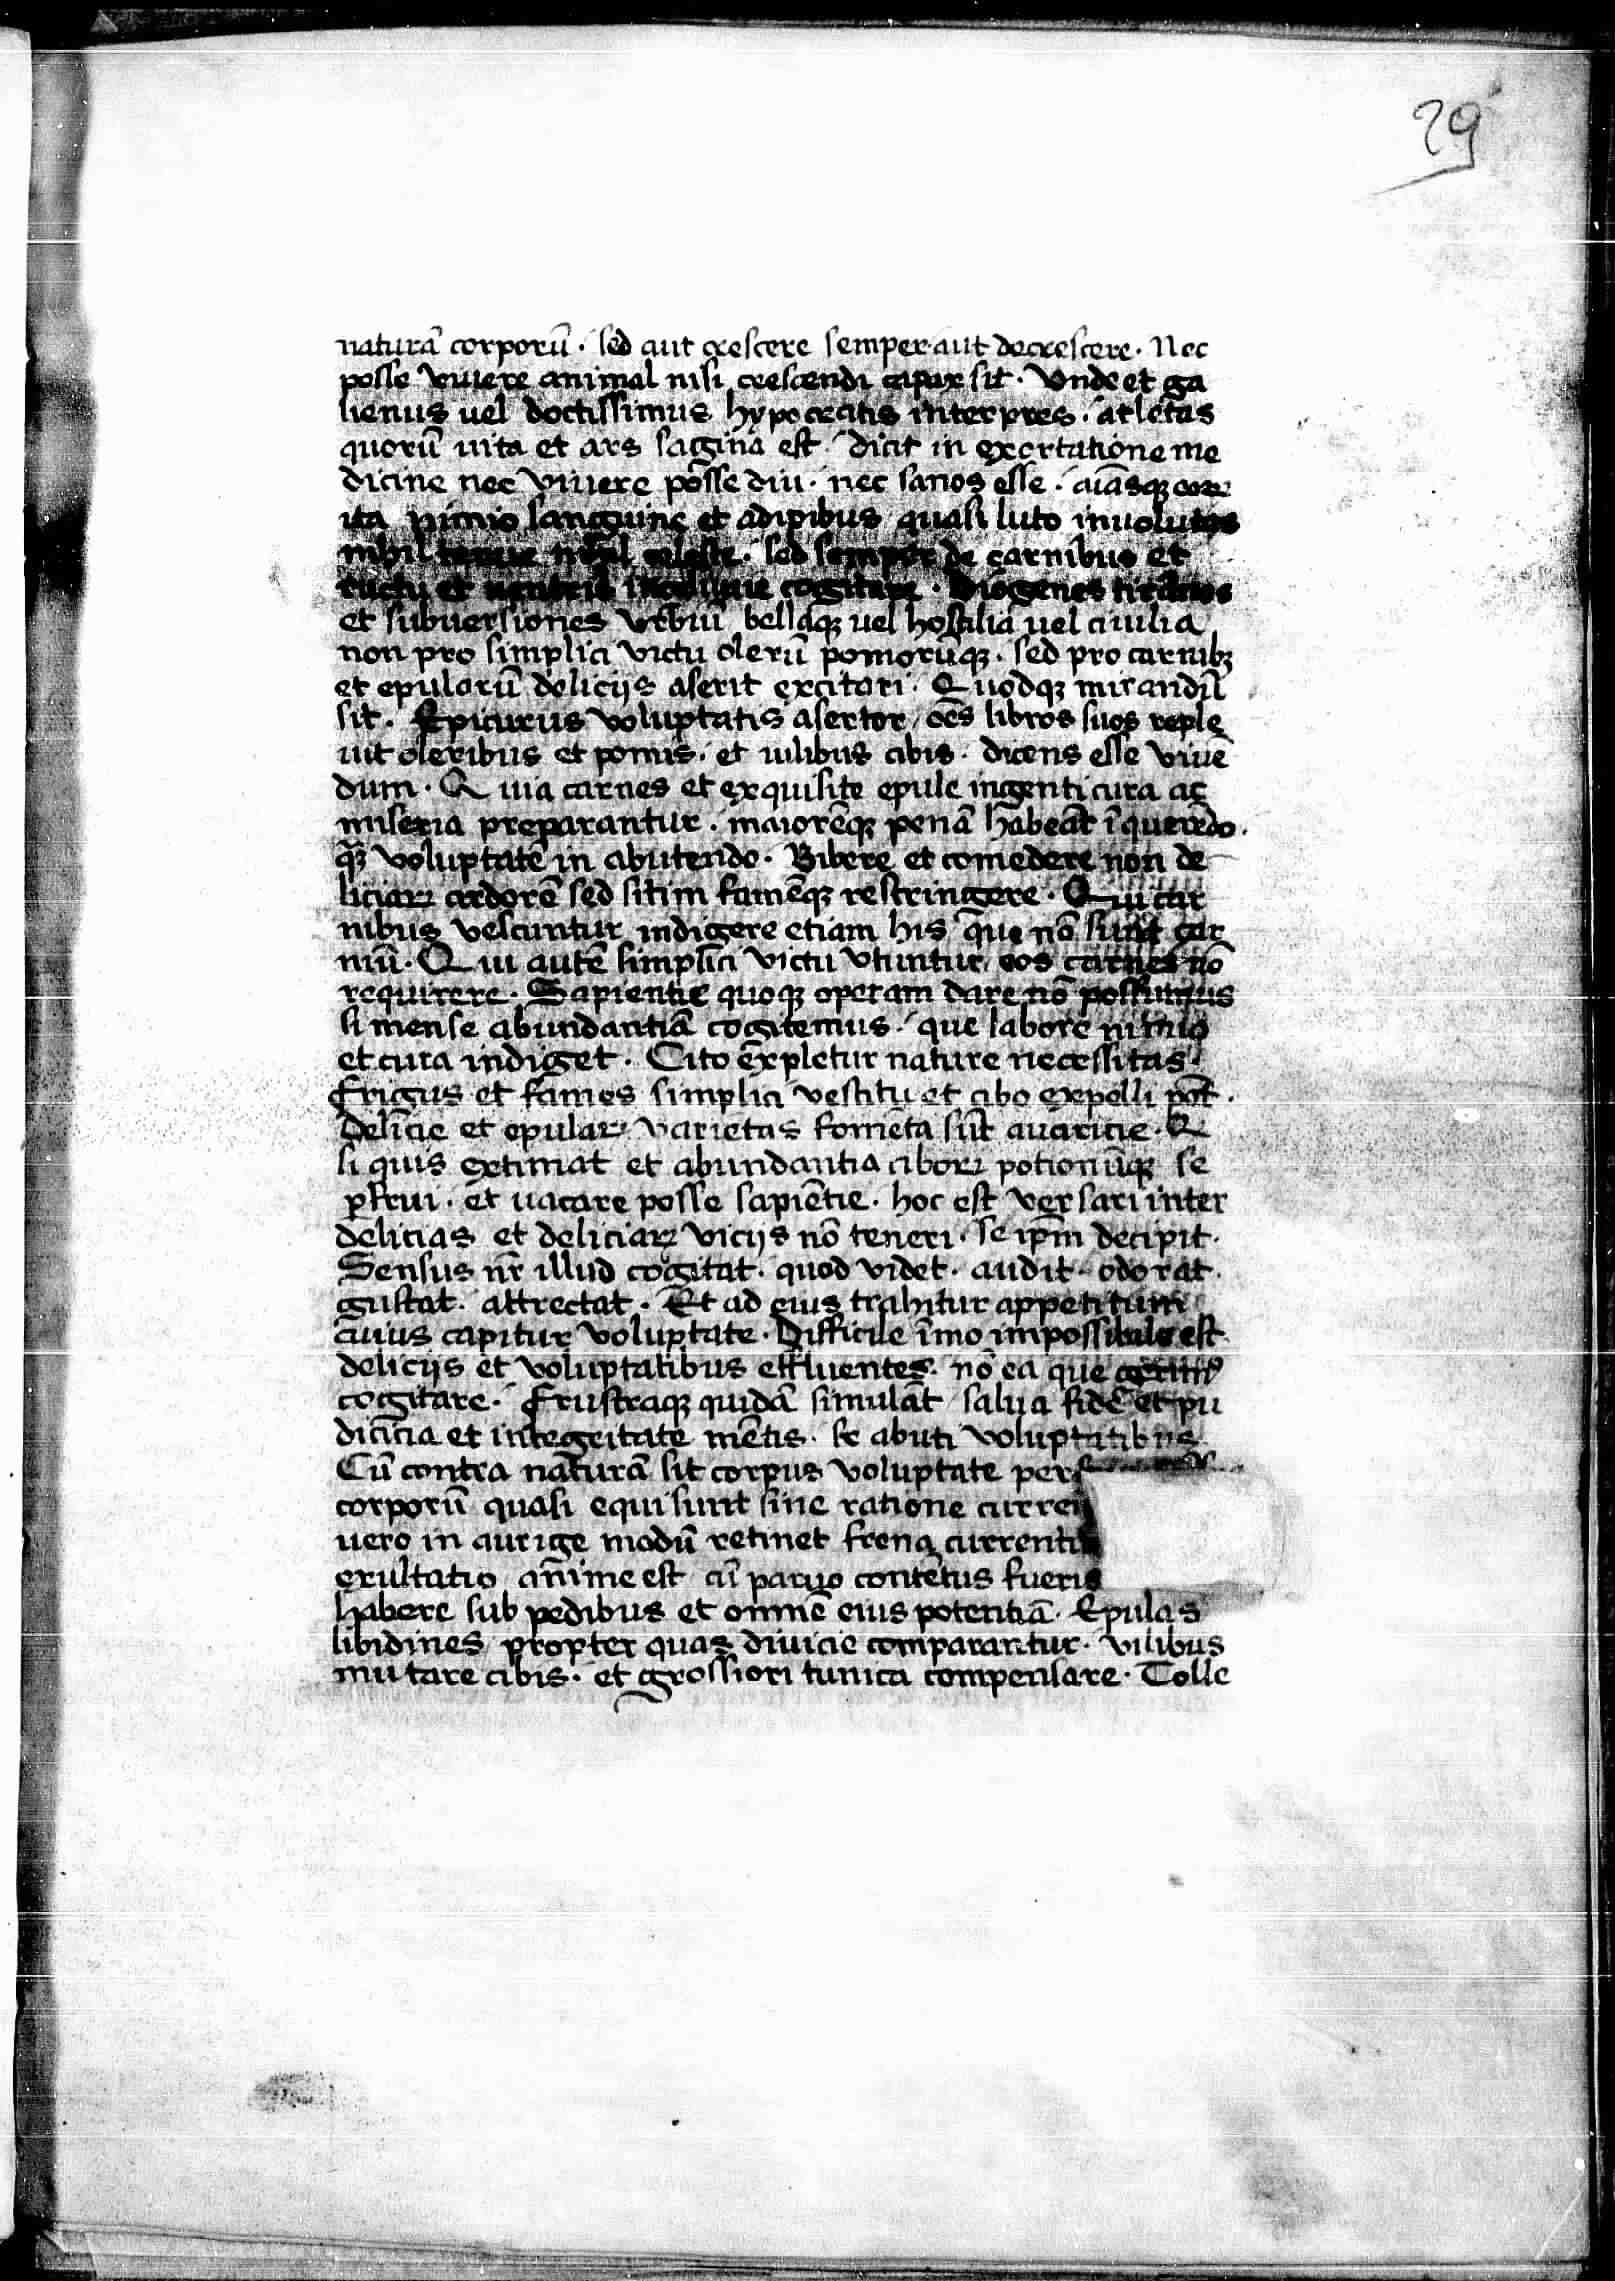 29
naturā corporū · sed aut crescere semper aut decrescere · Nec
posse viuere animal nisi crescendi capax sit · Vnde et ga
lienus uel doctissimus hypocratis interpres · atletas
quorū uita et ars sagina est · dicit in exortatione me
dicine nec viuere posse diu · nec sanos esse · aīasqꝫ eoꝝ
ita nimio sanguine et adipibus quasi luto inuolutas
nihil celeste · sed semper de carnibus et
ructu et uentris cogitare · Diogenes tirānos
et subuersiones vrbiū bellaqꝫ uel hostilia uel ciuilia
non pro simplici victu olerū pomorūqꝫ · sed pro carnibꝫ
et epularū delicijs aserit excitari · Quodqꝫ mirandū
sit · Epicurus voluptatis asertor / oēs libros suos reple
uit oleribus et pomis · et uilibus cibis · dicens esse viuē
dum · Quia carnes et exquisite epule ingenti cura ac
miseria preparantur · maiorēqꝫ penā habeāt ī querēdo ·
qꝫ voluptatē in abutendo · Bibere et comedere non de
liciaꝝ ardorē sed sitim famēqꝫ restringere · Qui car
nibus vescuntur indigere etiam his que nō sunt car
niū · Qui autē simplici victu vtuntur / eos carnes nō
requirere · Sapientie quoqꝫ operam dare nō possumus
si mense abundantiā cogitemus · que labore nimio
et cura indiget · Cito expletur nature necessitas ·
frigus et fames simplici vestitu et cibo expelli pōt ·
Delicie et epulaꝝ varietas fomēta sūt auaricie · Q
si quis extimat et abundantia ciboꝝ potionūqꝫ se
ꝑfrui · et uacare posse sapiētie · hoc est versari inter
delicias et deliciaꝝ vicijs nō teneri · se ip̄m decipit ·
Sensus nr̄ illud cogitat · quod videt · audit · odorat ·
gustat · attrectat · Et ad eius trahitur appetitum
cuius capitur voluptate · Difficile īmo impossibile est
delicijs et voluptatibus effluentes · nō ea que
cogitare · frustraqꝫ quidā simulāt salua fide et pu
dicicia et integritate mētis · se abuti voluptatibus
Cū contra naturā sit corpus voluptate
corporū quasi equi sunt sine ratione curren
uero in aurige modū retinet frena currenti
exultatio anime est cū paruo contētus fueris
habere sub pedibus et omnē eius potentiā · Epulas
libidines propter quas diuicie comparantur · vilibus
mutare cibis · et grossiori tunica compensare · Tolle